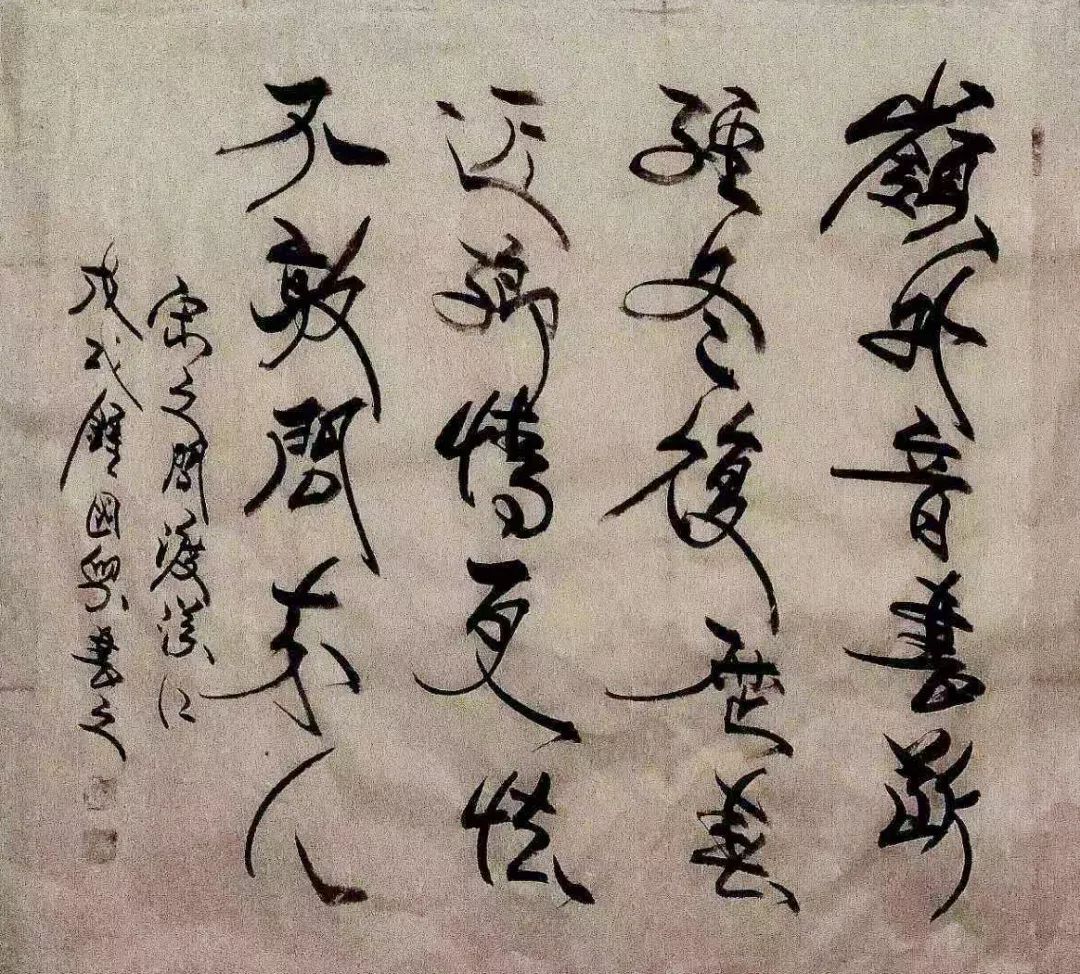 嶺外音書斷
經冬復歷春
近鄉情更怯
不敢問來人
宋之問渡漢江
戊戌國興書之